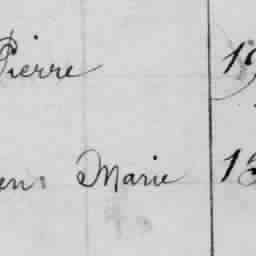 Pierre 19
en: Marie 13